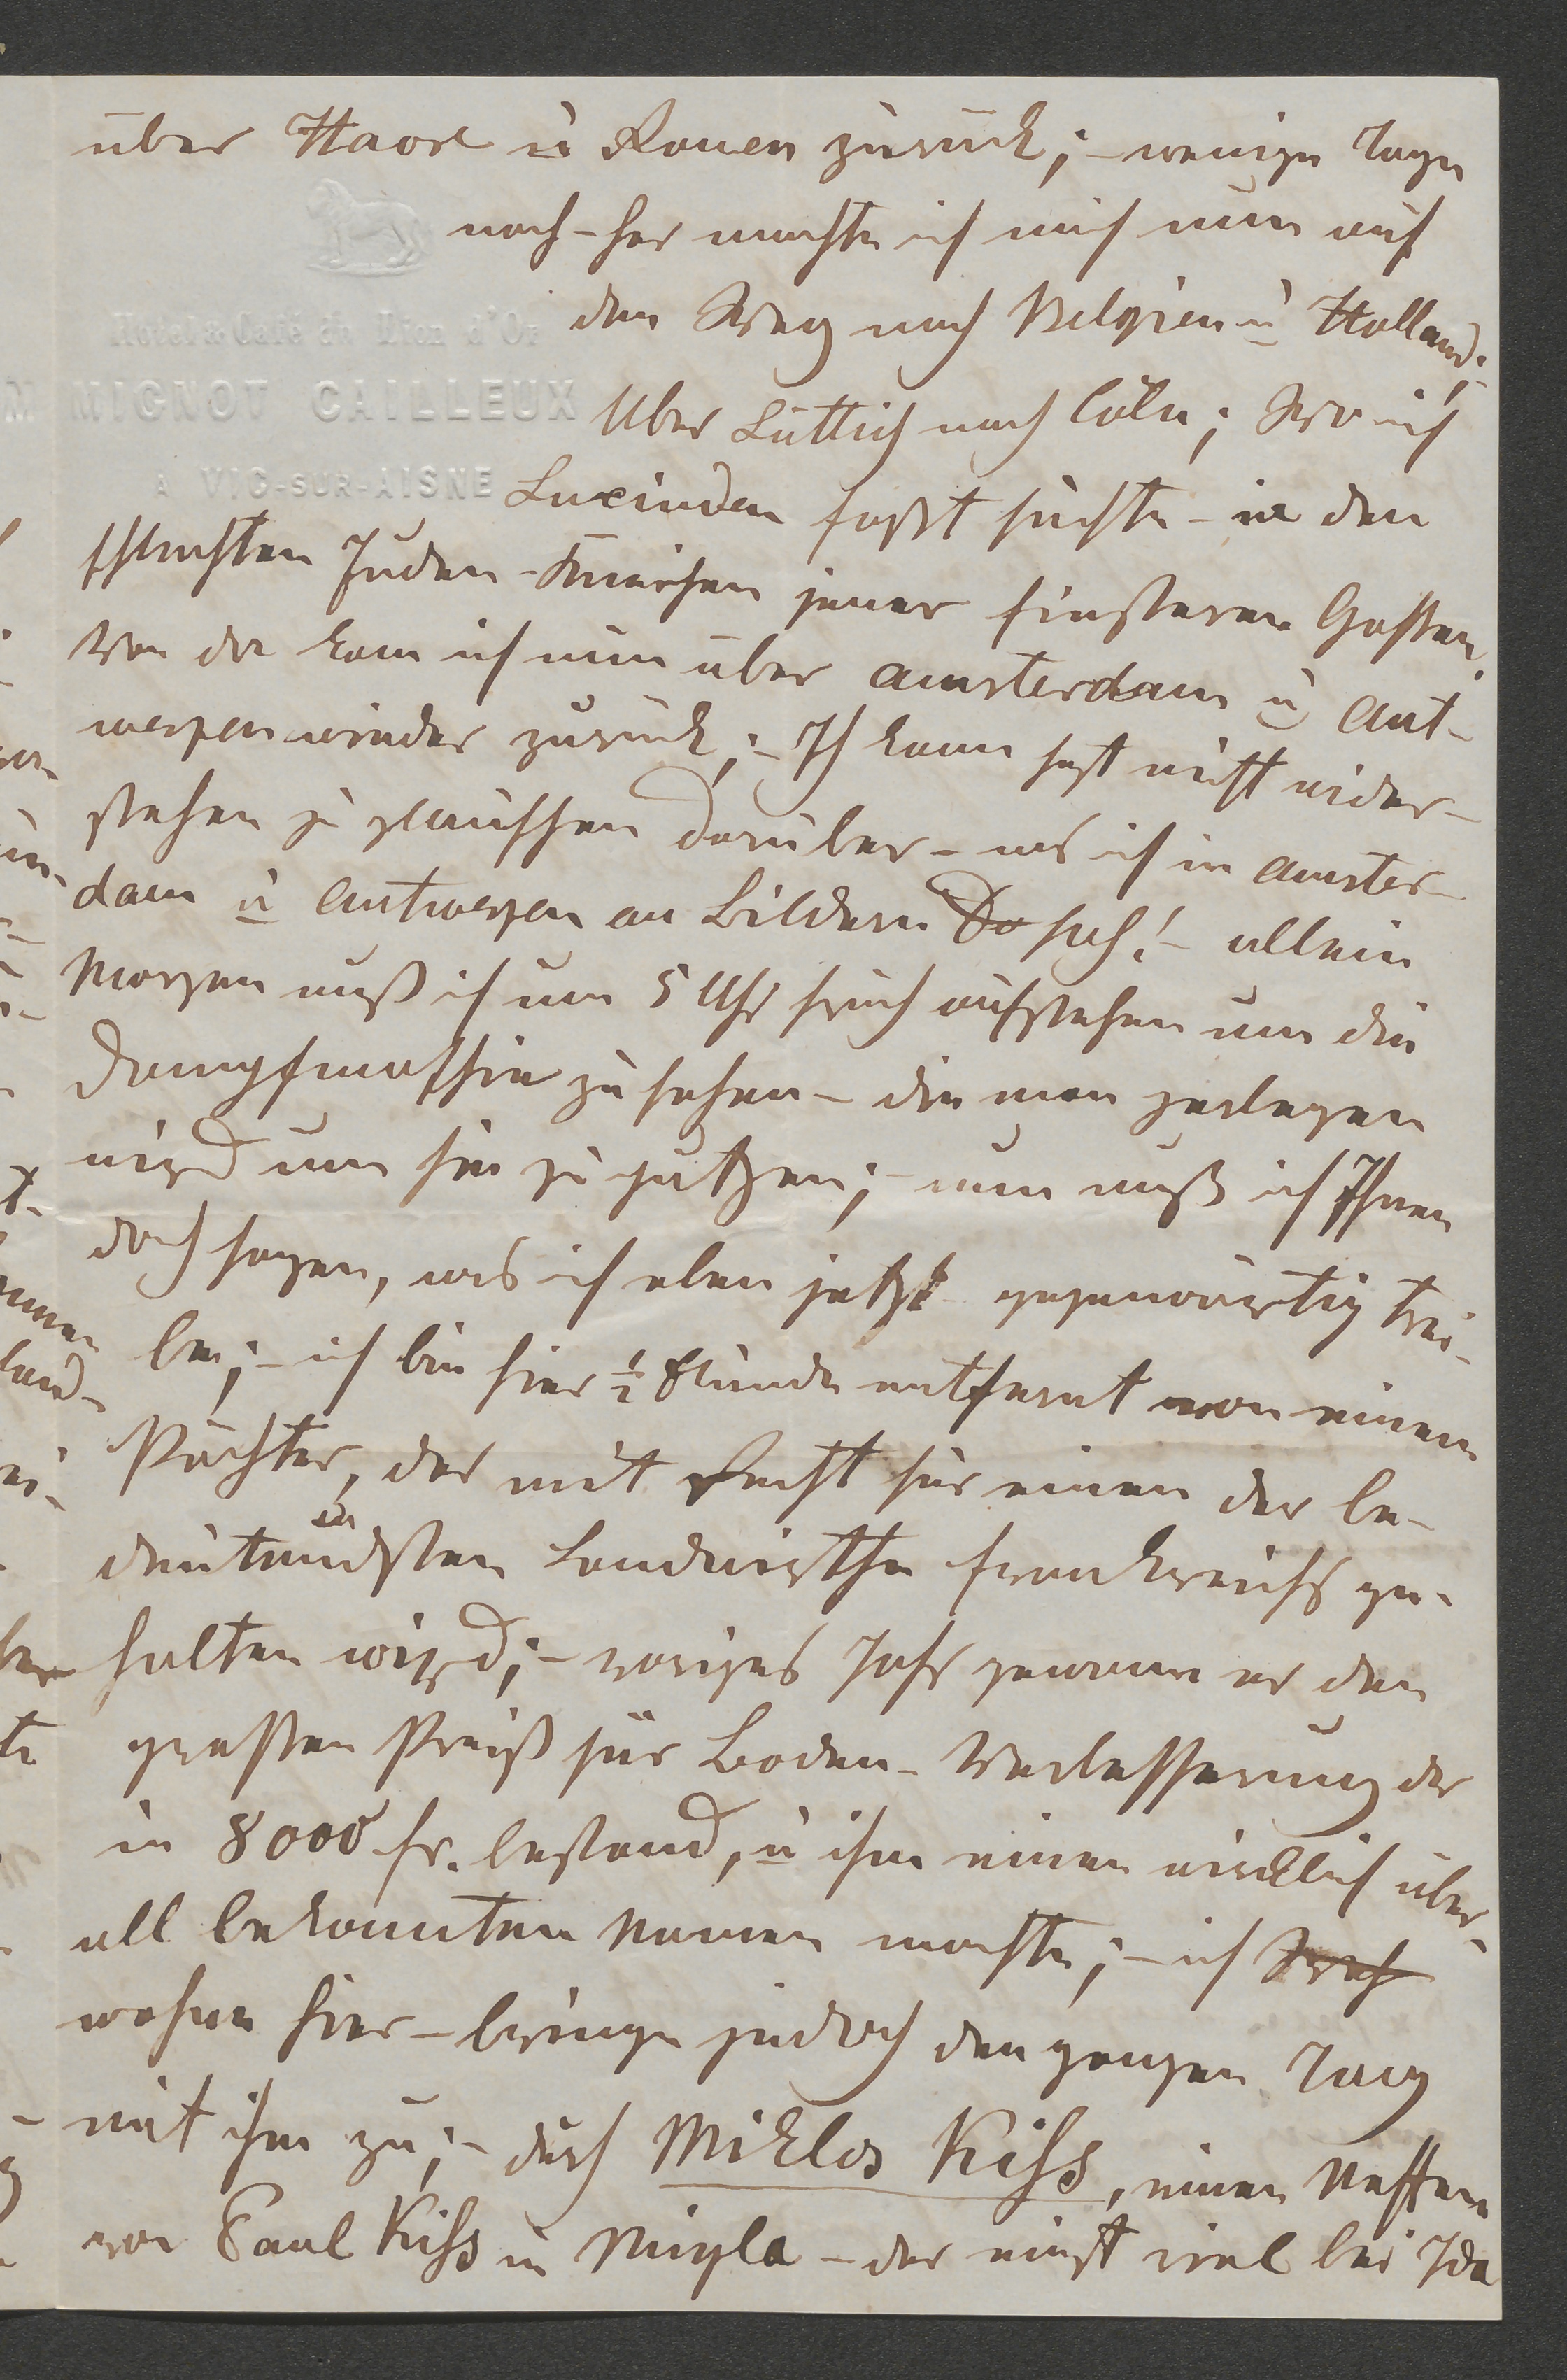 über Havre ù Rouen zurück; – wenige Tage
nach-her machte ich mich nun auf
den Weg nach Belgien ù Holland;
Hotel & Café du Lion d'Or
MIGNOT CAILLEUX
A VIC-SUR-AISNE
Über Lüttich nach Cöln; Wo ich
Lucinden suchte – in den
schlechsten Juden-Kneipen jener finsteren Gassen.
Von da kam ich nun über Amsterdam ù Ant-
werpen wieder zurück; – Ich kann fast nicht wider-
stehen zu plauschen darüber – was ich in Amster-
dam ù Antwerpen an Bildern Do sah! – allein
Morgen muß ich um 5 Uhr früh aufstehen um die
Dampfmaschin zu sehen – die man zerlegen
wird um sie zu putzen; – nun muß ich Ihnen
doch sagen, was ich eben jetzt gegenwärtig trei-
be; – ich bin hier ½ Stunde entfernt von einem
Pächter, der mit Recht für einen der be-
deutendsten Landwirthe Frankreichs ge-
halten wird; – voriges Jahr gewann er den
großen Preiß für Boden-Verbesserung der
in 8000 fr. bestand, ù ihm einen wirklich über-
all bekannten Namen machte; – ich
wohne hier – bringe jedoch den ganzen Tag
mit ihm zu; – durch Miklos Kiss, einen Neffen
von Paul Kiss in Migla – der einst viel bei Ida